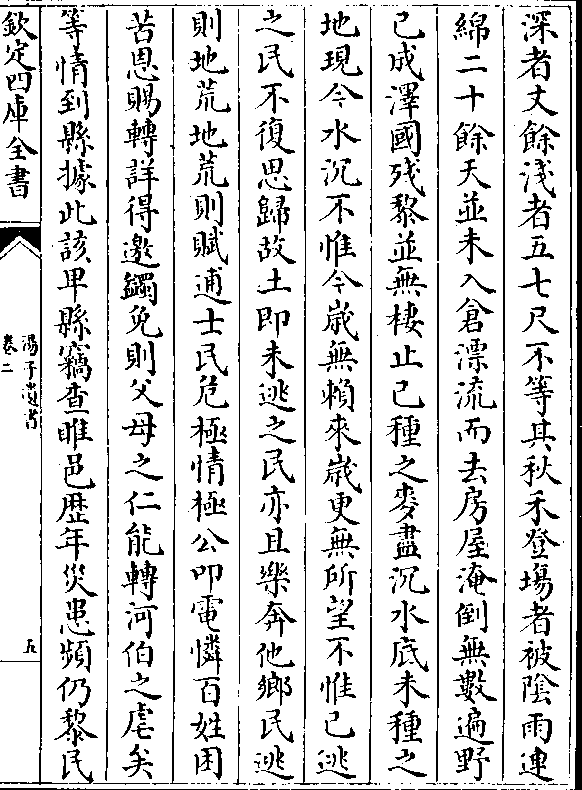 深者丈餘淺者五七尺不等其秋禾登場者被陰雨連
綿二十餘天並未入倉漂流而去房屋淹倒無數遍野
已成澤國殘黎並無棲止已種之麥盡沉水底未種之
地現今水沉不惟今歳無賴來歳更無所望不惟已逃
之民不復思歸故土即未逃之民亦且樂奔他鄉民逃
則地荒地荒則賦逋士民危極情極公叩電憐百姓困
苦恩賜轉詳得邀蠲免則父母之仁能轉河伯之虐矣
等情到縣據此該卑縣竊查睢邑歴年災患頻仍黎民
欽定四庫全書
湯子遺書
卷二
五